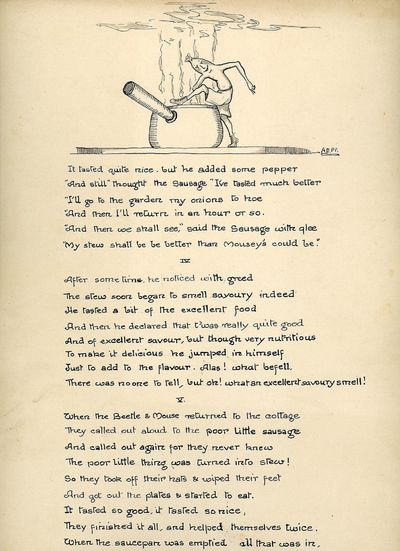 It tasted quite nice, but he added some pepper
"And still" thought the Sausage "I've tasted much better
"I'll go to the garden my onions to hoe
"And then I'll return in an hour or so.
"And then we shall see," said the Sausage with glee
"My stew shall be be better than Mousey's could be."
IV
After some time, he noticed with greed
The stew soon began to smell savoury indeed
He tasted a bit of the excellent food
And then he declared that t'was really quite good
And of excellent savour, but though very nutritious
To make it delicious he jumped in himself
Just to add to the flavour. Alas! what befell.
There was no one to tell, but oh! what an excellent savoury smell!
V.
When the Beetle & Mouse returned to the cottage
They called out aloud to the poor little sausage
And called out again for they never knew
The poor little thing was turned into stew!
So they took off their hats & wiped their feet
And got out the plates & started to eat.
It tasted so good, it tasted so nice,
They finished it all, and helped themselves twice.
When the saucepan was emptied all that was in,